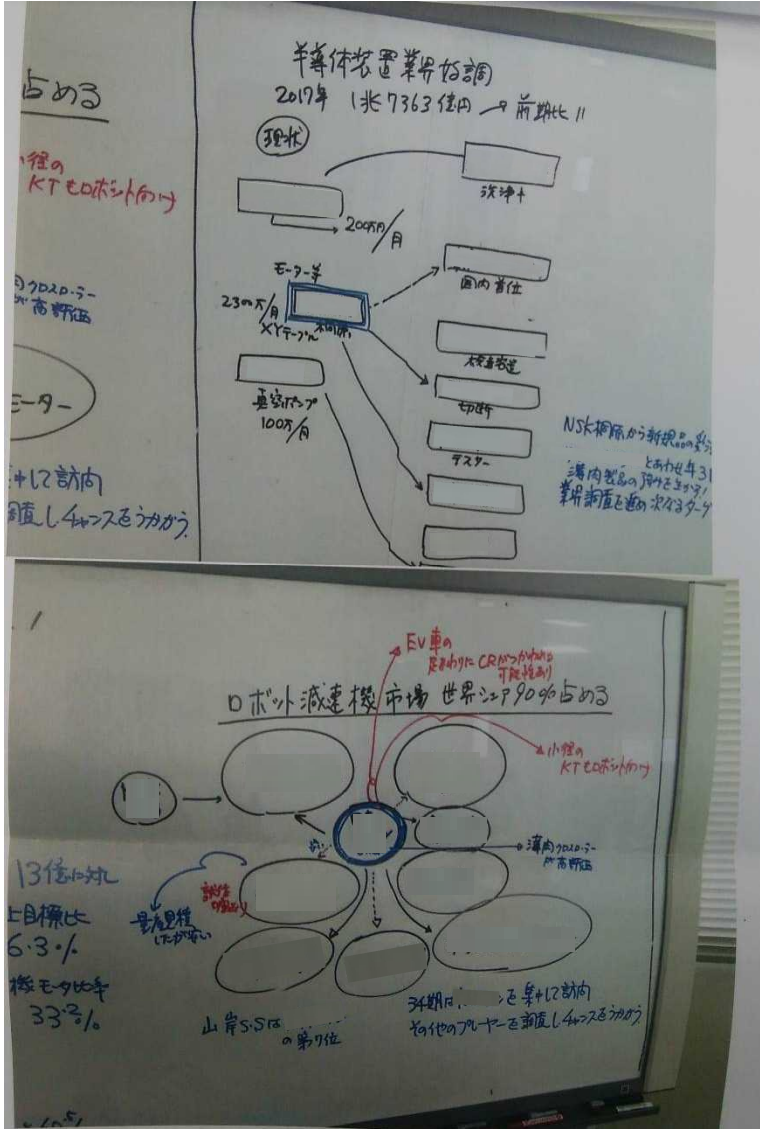 占める
小径の
KTもロボット向け
肉クロスローラー
が高評価
モーター
集中して訪問
調査しチャンスをうかがう.
半導体装置業界好調
2017年 1兆7363億円 → 前期比11
現状
洗浄
200万円/月
モーター
国内首位
2300万/月
XYテーブル
検査装置
真空ポンプ
100万/月
切断
テスター
NSK桐原から新規品の
とあわせ
薄肉製品の強みを生かす!
業界調査を進め次なるター
EV車の
足まわりにCRがつかわれる
可能性あり
ロボット減速機市場 世界シェア90%占める
小径の
KTもロボット向け
薄肉クロスローラー
が高評価
13億に対し
上目標比
6.3%
機モータ比率
33.2%
量産見積
したが安い
山岸S.Sは
の第7位
34期は
を集中して訪問
その他のプレーヤーを調査しチャンスをうかがう.